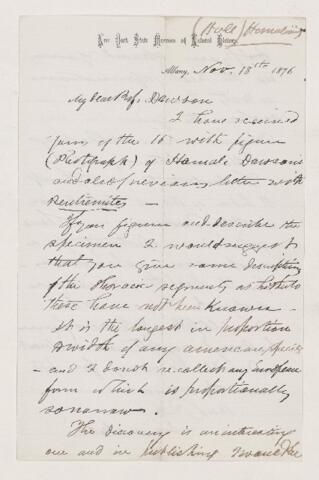 (Hall) Homalinotus
New York State Museum of Natural History
Albany, Nov. 18th 1876
My dear Prof. Dawson
I have received
yours of the 16 with figure
(Photograph) of Homal. Dawsoni
and also previous letter with
Pentremites —
If you figure and describe the
specimen I would suggest
that you give some description
of the thoracic segments as hitherto
these have not been known —
It is the longest in proportion
to width of any american species
— and I do not recollect any european
form which is proportionally
so narrow.
The discovery is an interesting
one and in publishing